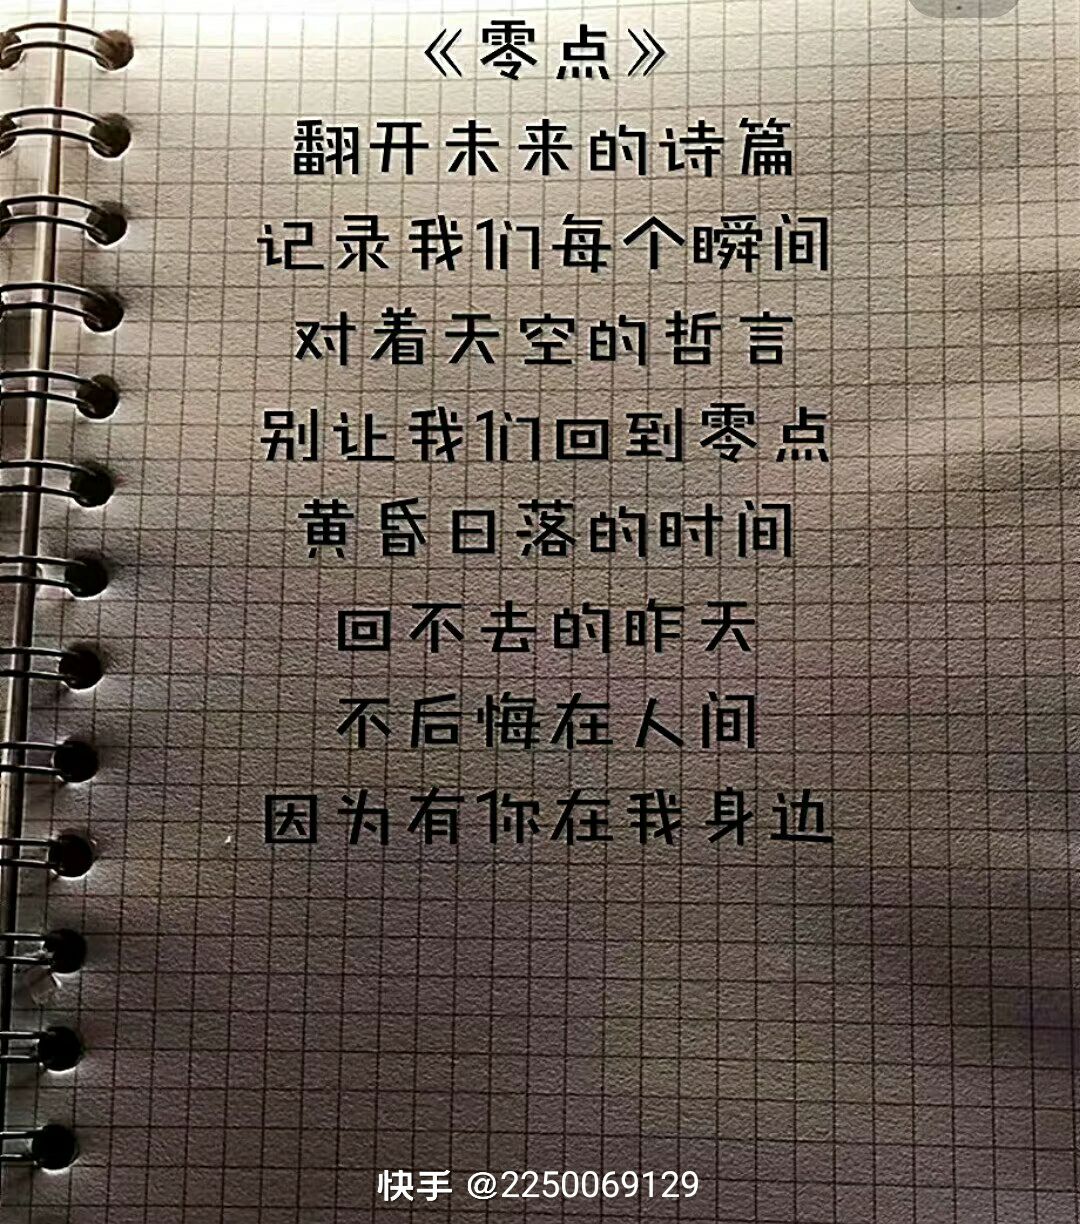 《零点》
翻开未来的诗篇
记录我们每个瞬间
对着天空的哲言
别让我们回到零点
黄昏日落的时间
回不去的昨天
不后悔在人间
因为有你在我身边
快手 @2250069129